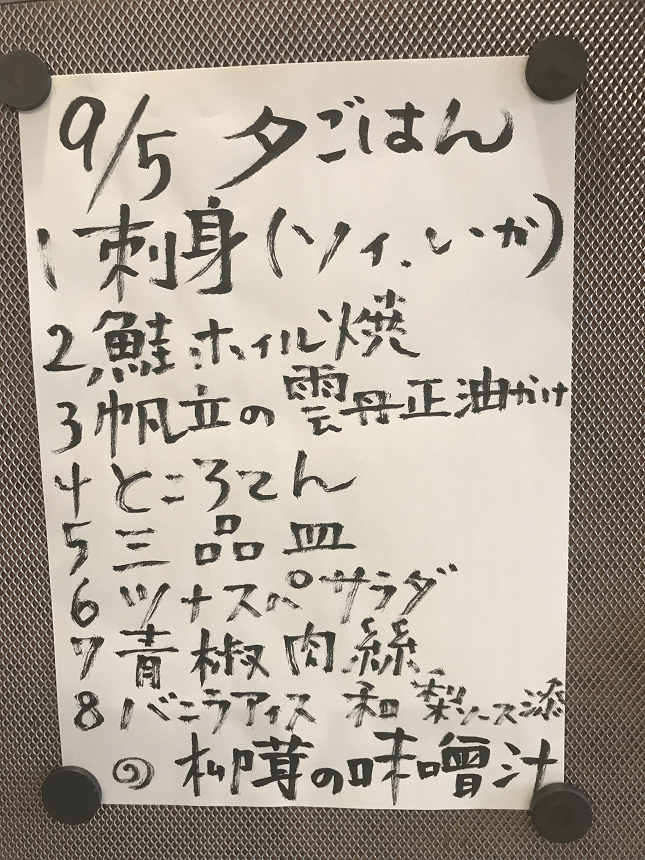 9/5 夕ごはん
1 刺身(ソイ、いか)
2, 鮭ホイル焼
3 帆立の雲丹正油かけ
4 ところてん
5 三品皿
6 ツナスパサラダ
7 青椒肉絲
8 バニラアイス 和梨ソース添
◎ 柳茸の味噌汁